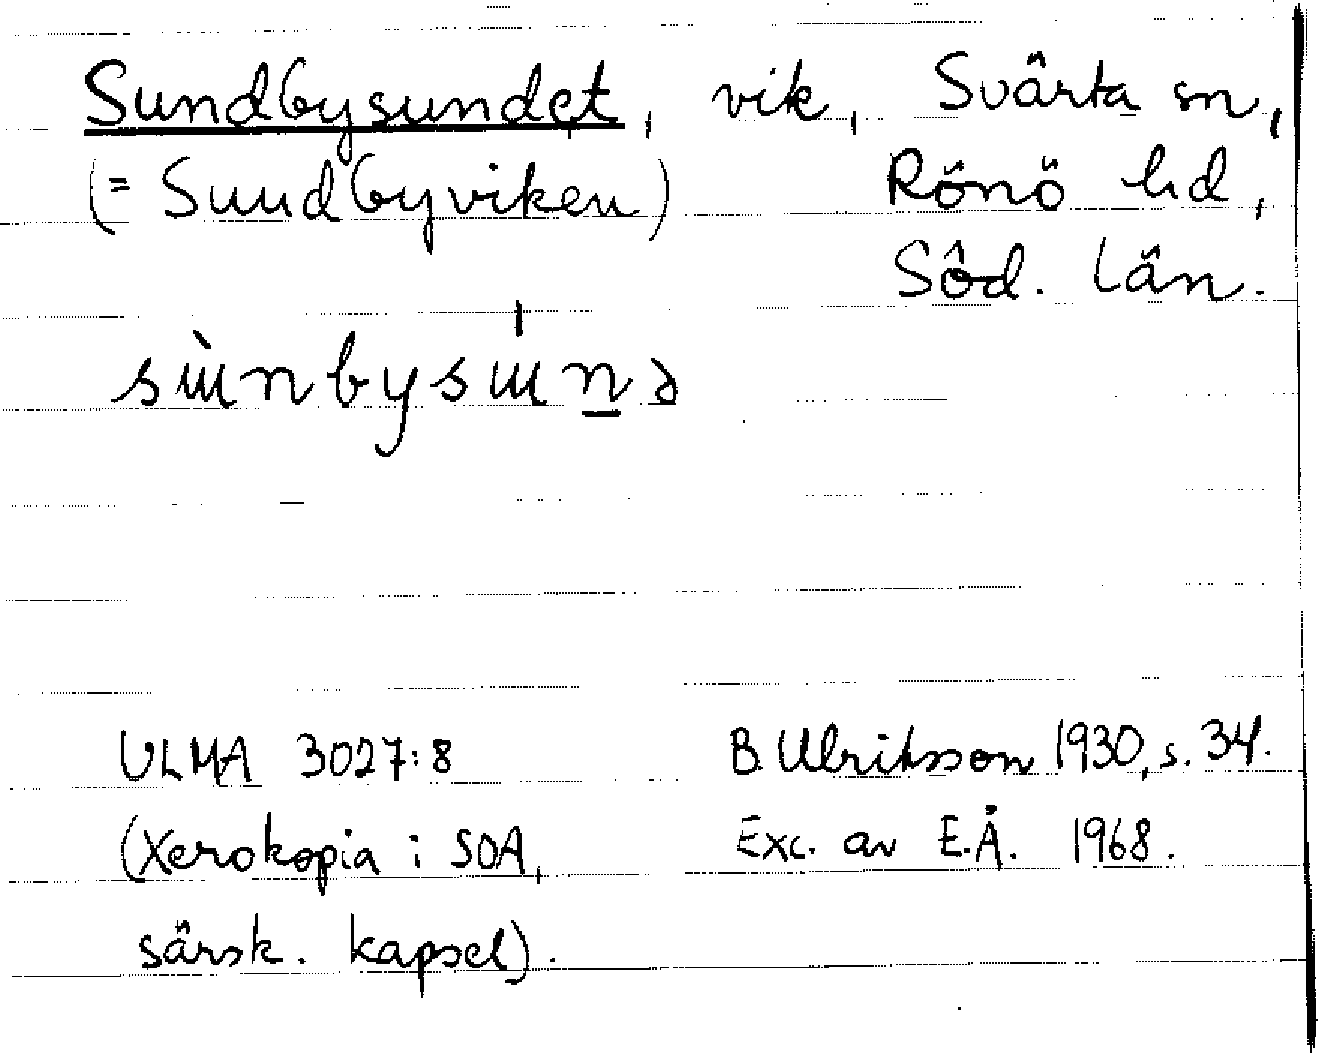 Sundbysundet, vik, Svärta sn,
(= Sundbyviken) Rönö hd,
Söd. län.
ULMA 3027:8 B. Ulriksson 1930, s. 34.
(Xerokopia i SOA, Exc. av E.Å. 1968.
särsk. kapsel).